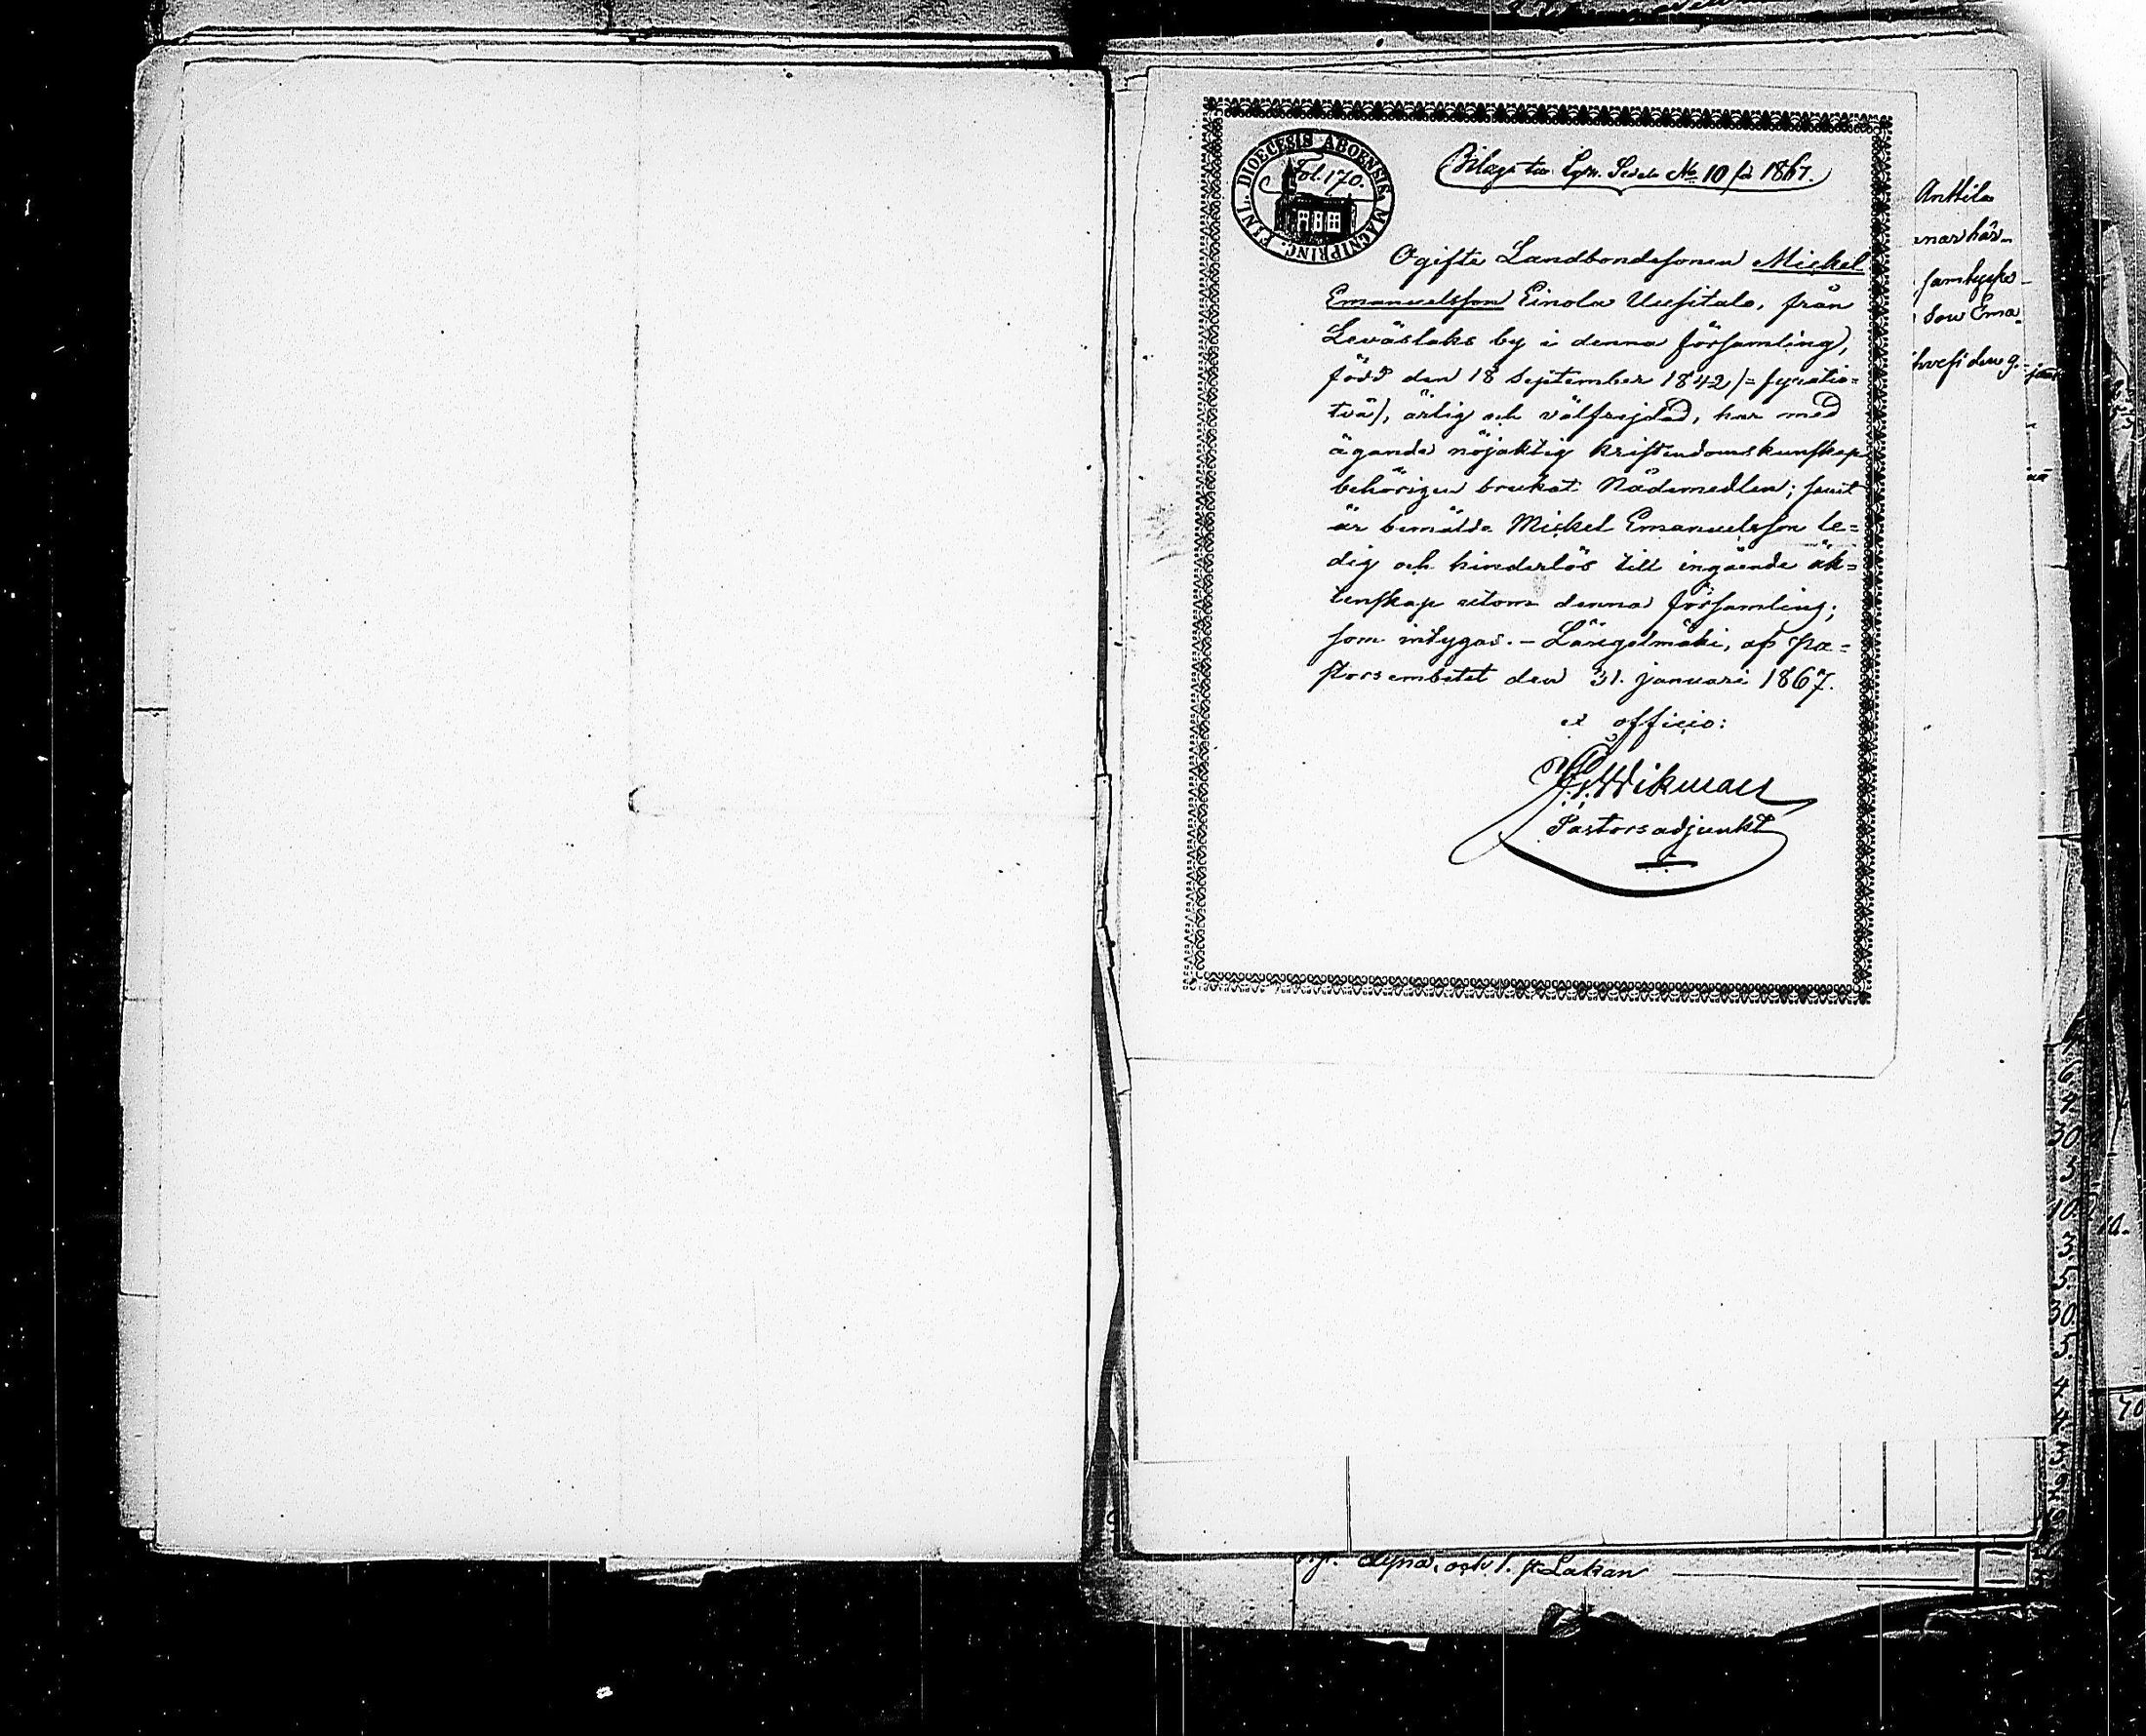 DIOECESIS ABOENSIS MAGNIPRINC. FINL.
Fol. 170.
Bilaga till Lysn. Sedeln No 10 för 1867.
Ogifte Landbondesonen Mickel
Emanuelsson Einola Uusitalo, från
Leväslaks by i denna församling,
född den 18 September 1842 (= fyratio=
två), ärlig och välfrejdad, har med
ägande nöjaktig kristendomskunskap
behörigen brukat Nådemedlen; samt
är bemälde Mickel Emanuelsson le=
dig och hinderlös till ingående äk=
tenskap utom denna församling;
som intygas. – Längelmäki, af Pa=
storsembetet den 31. januari 1867.
ex officio:
Wikman
Pastorsadjunkt
Anttila
nar här-
samtycke
Son Ema-
den 9.
dyna, och 1. st Lakan